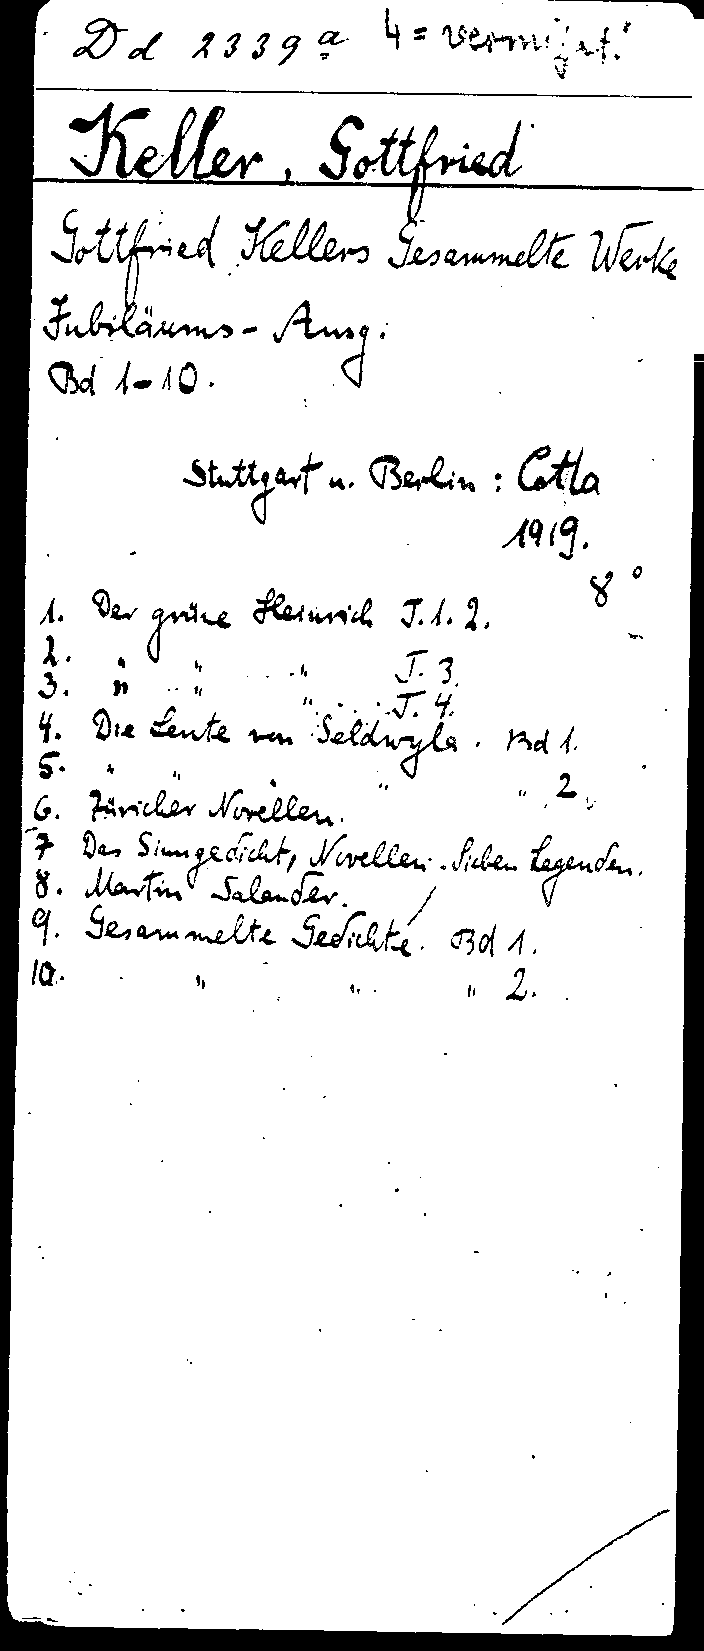 Dd 2339 a 4 = vermißt!
Keller, Gottfried
Gottfried Kellers Gesammelte Werke
Jubiläums-Ausg.
Bd 1-10.
Stuttgart u. Berlin : Cotta
1919.
8°
1. Der grüne Heinrich T. 1. 2.
2. " " " T. 3.
3. " " " T. 4.
4. Die Leute von Seldwyla. Bd 1.
5. " " " " " 2.
6. Züricher Novellen.
7 Das Sinngedicht, Novellen. Sieben Legenden.
8. Martin Salander.
9. Gesammelte Gedichte. Bd 1.
10. " " " 2.